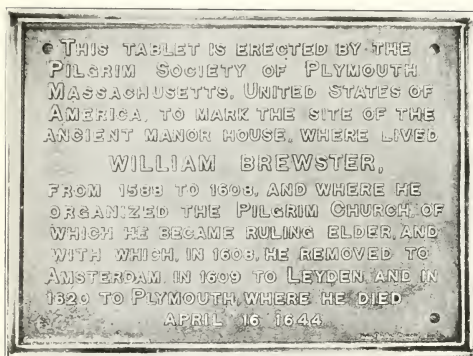 THIS TABLET IS ERECTED BY THE
PILGRIM SOCIETY OF PLYMOUTH
MASSACHUSETTS, UNITED STATES OF
AMERICA, TO MARK THE SITE OF THE
ANCIENT MANOR HOUSE, WHERE LIVED
WILLIAM BREWSTER,
FROM 1588 TO 1608, AND WHERE HE
ORGANIZED THE PILGRIM CHURCH, OF
WHICH HE BECAME RULING ELDER, AND
WITH WHICH, IN 1608, HE REMOVED TO
AMSTERDAM, IN 1609 TO LEYDEN, AND IN
1620 TO PLYMOUTH, WHERE HE DIED
APRIL 16 1644